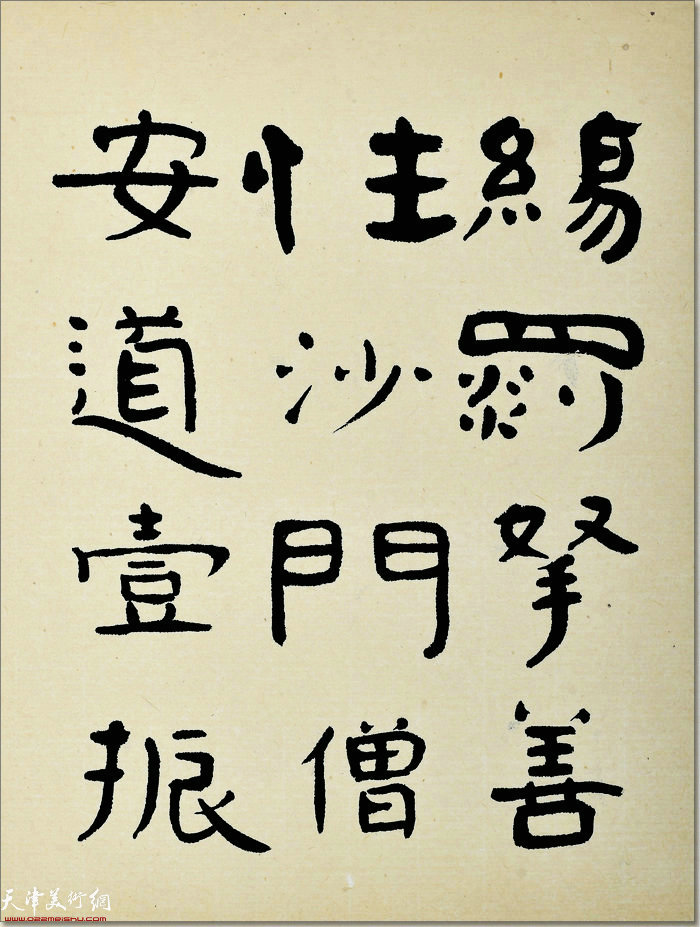 緆罽拏善
性沙門僧
安道壹振
天津美術網
www.022meishu.com